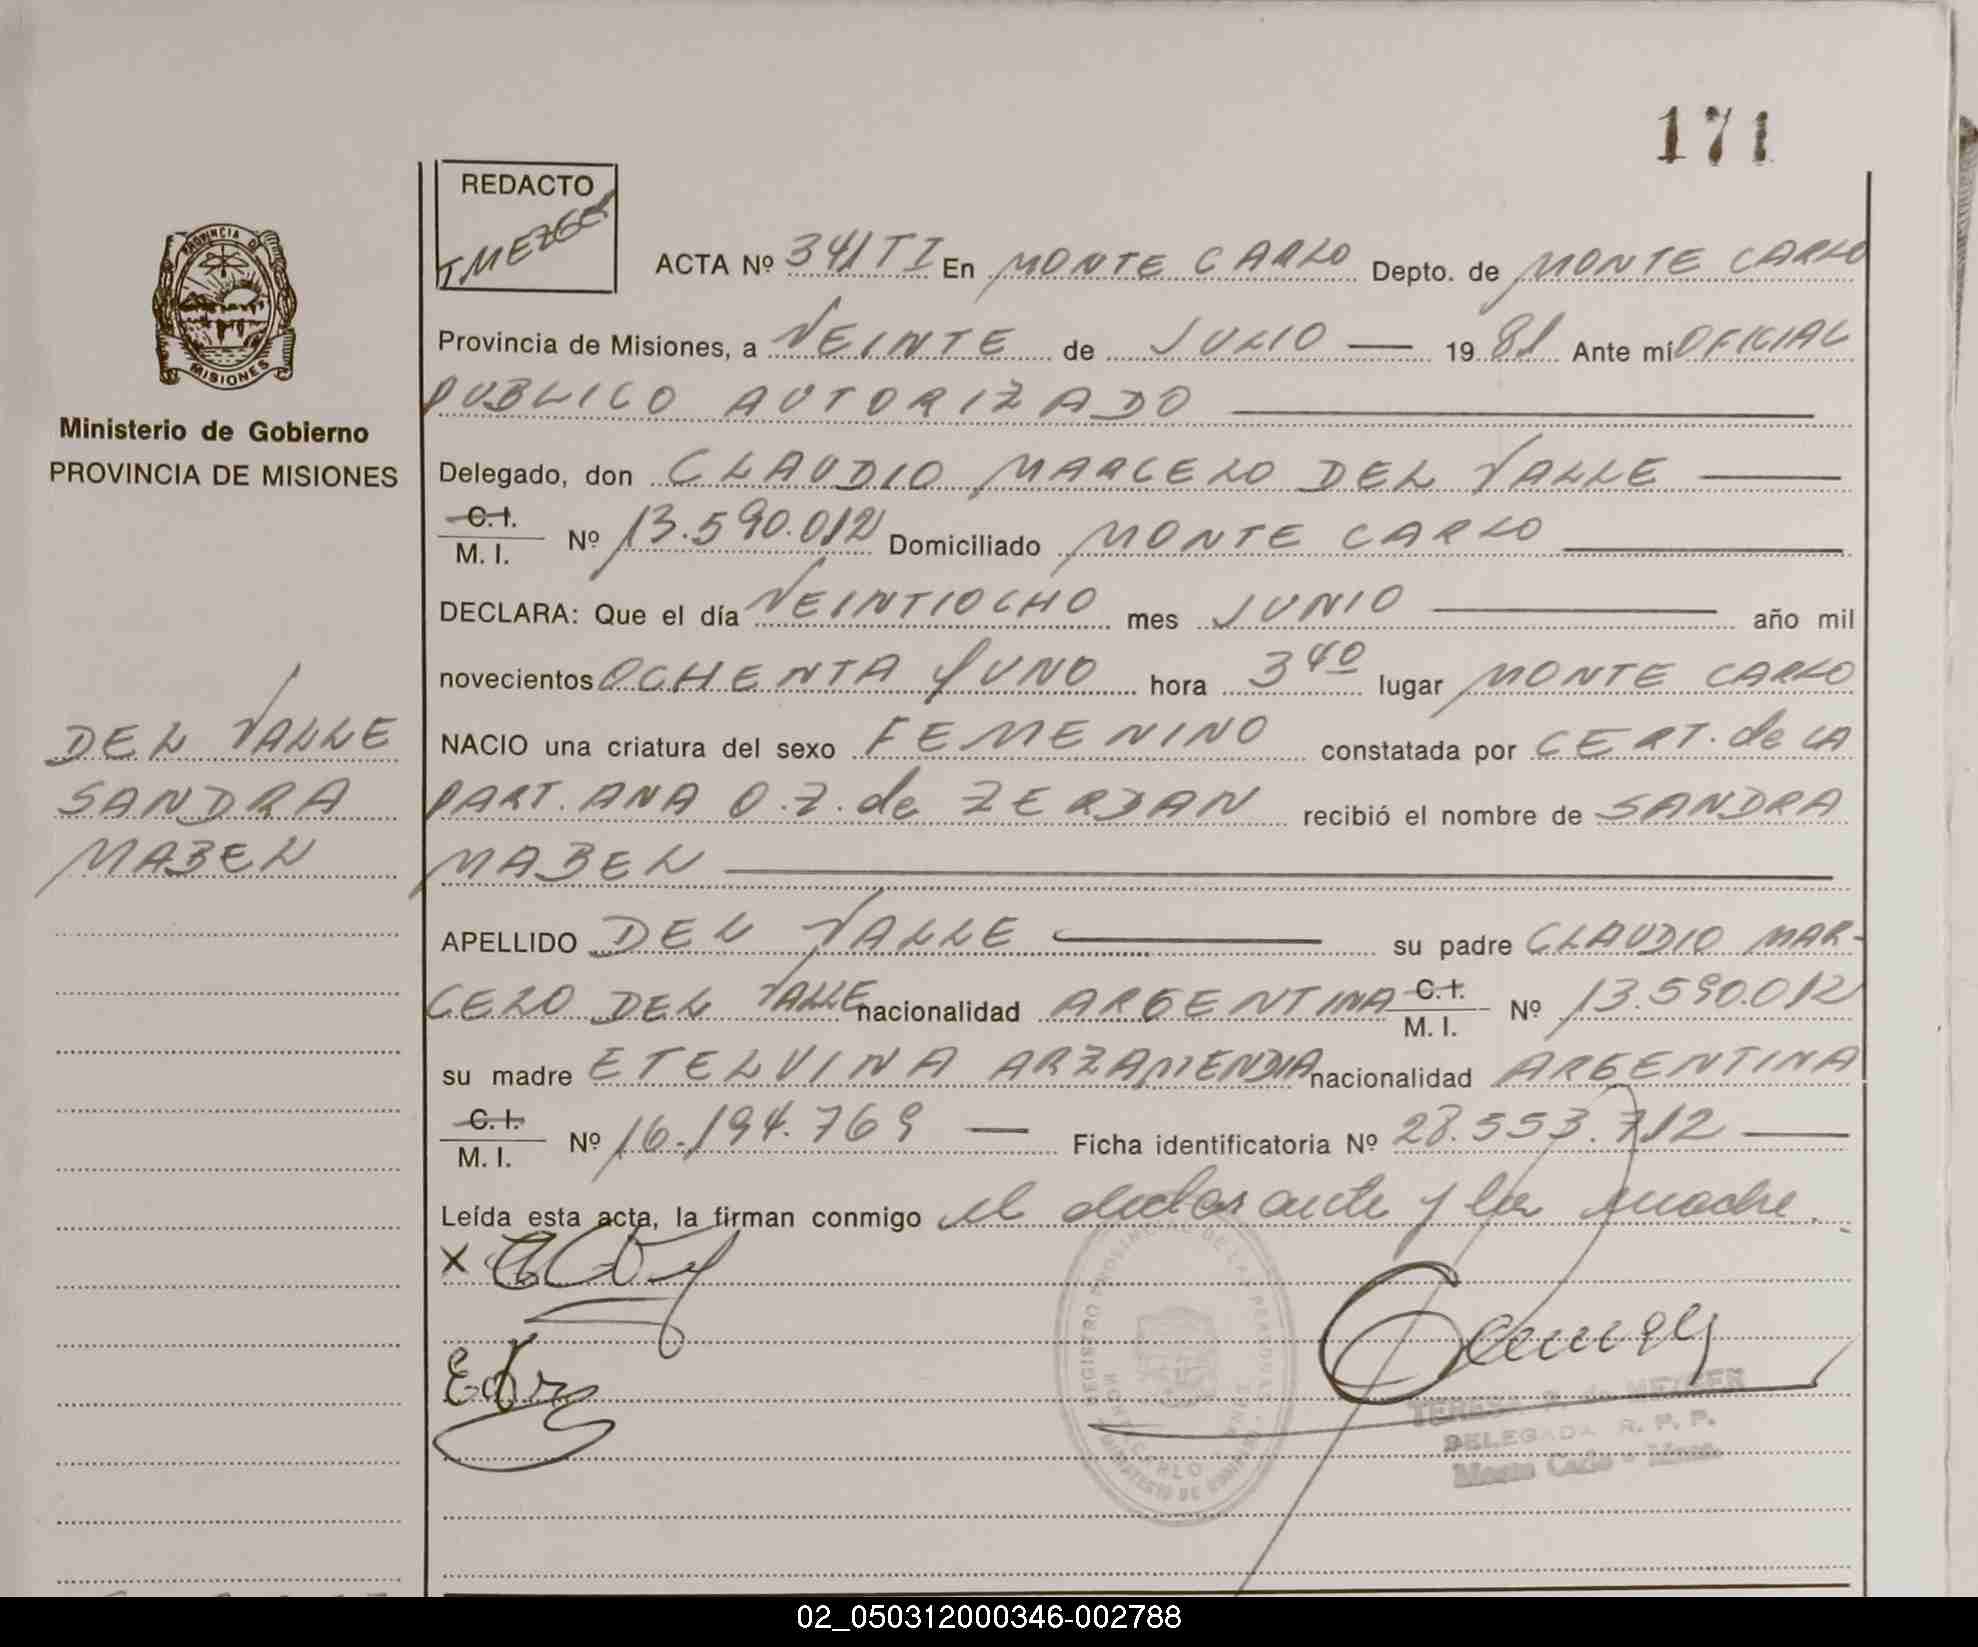 171
REDACTO
T MEZGER
ACTA Nº 341 TI En MONTE CARLO Depto. de MONTE CARLO
PROVINCIA DE
MISIONES
Provincia de Misiones, a VEINTE de JULIO — 19 81 Ante mí OFICIAL
PUBLICO AUTORIZADO
Ministerio de Gobierno
PROVINCIA DE MISIONES
Delegado, don CLAUDIO MARCELO DEL VALLE
C.I.
M. I. Nº 13.590.012 Domiciliado MONTE CARLO
DECLARA: Que el día VEINTIOCHO mes JUNIO año mil
novecientos OCHENTA Y UNO hora 3 40 lugar MONTE CARLO
DEL VALLE
SANDRA
MABEL
NACIO una criatura del sexo FEMENINO constatada por CERT. de LA
PART. ANA O. Z. de ZERDAN recibió el nombre de SANDRA
MABEL
APELLIDO DEL VALLE su padre CLAUDIO MAR-
CELO DEL VALLE nacionalidad ARGENTINA C.I. M. I. Nº 13.590.012
su madre ETELVINA ARZAMENDIA nacionalidad ARGENTINA
C.I.
M. I. Nº 16.194.769 — Ficha identificatoria Nº 28.553.712 —
Leída esta acta, la firman conmigo el declarante y la madre.
X
REGISTRO PROVINCIAL DE LAS PERSONAS
MONTE CARLO
MINISTERIO DE GOBIERNO
TERESA de MEZGER
DELEGADA R. P. P.
Monte Carlo - Mnes.
02_050312000346-002788